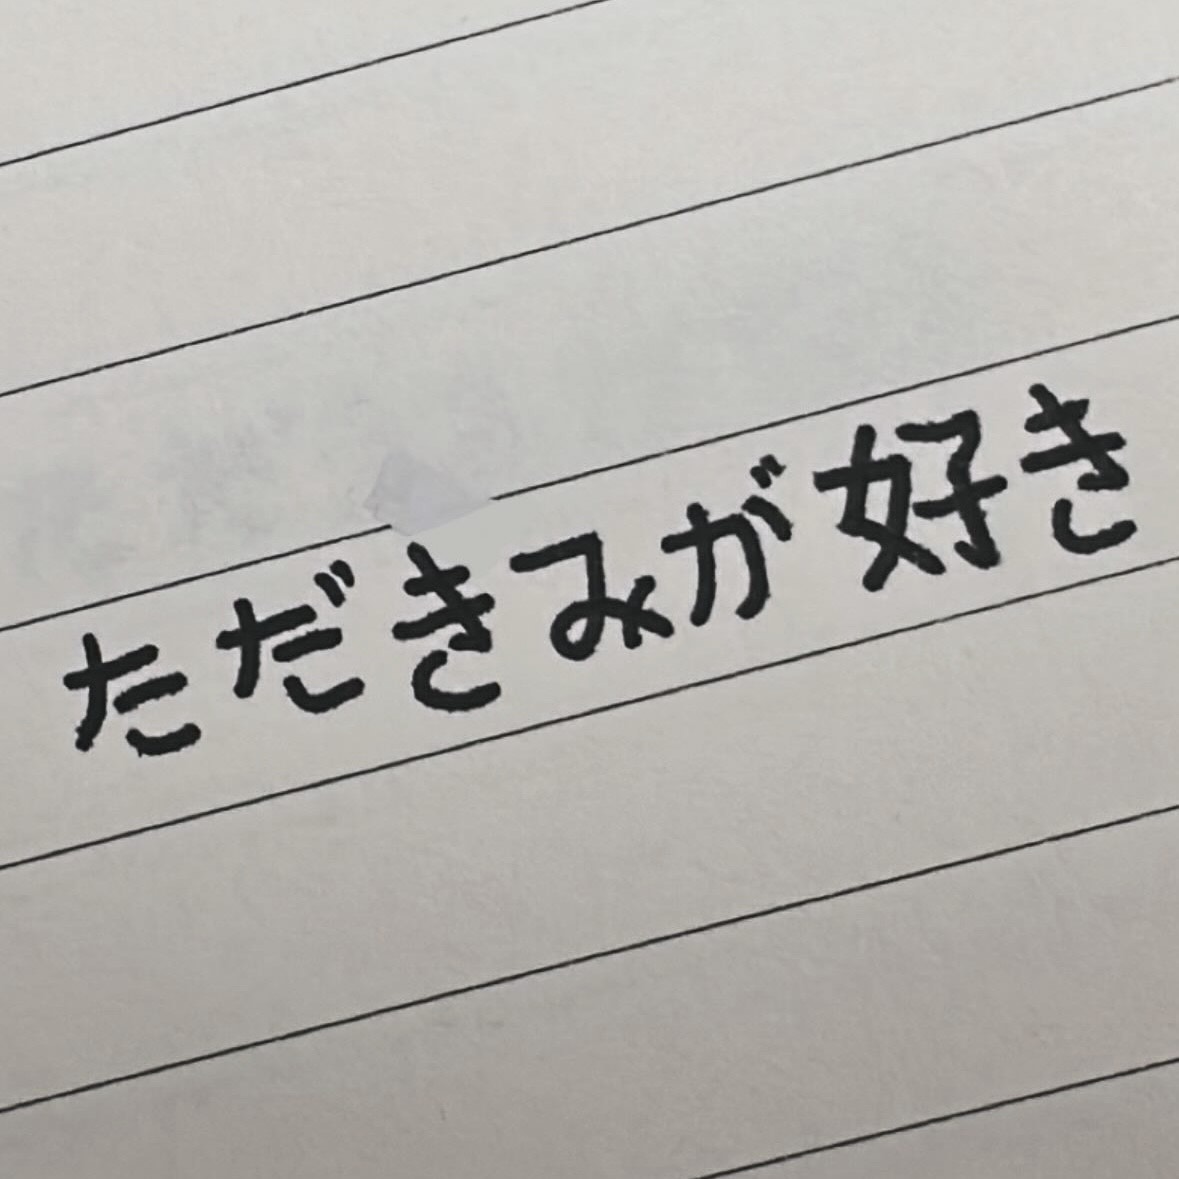 ただきみが好き